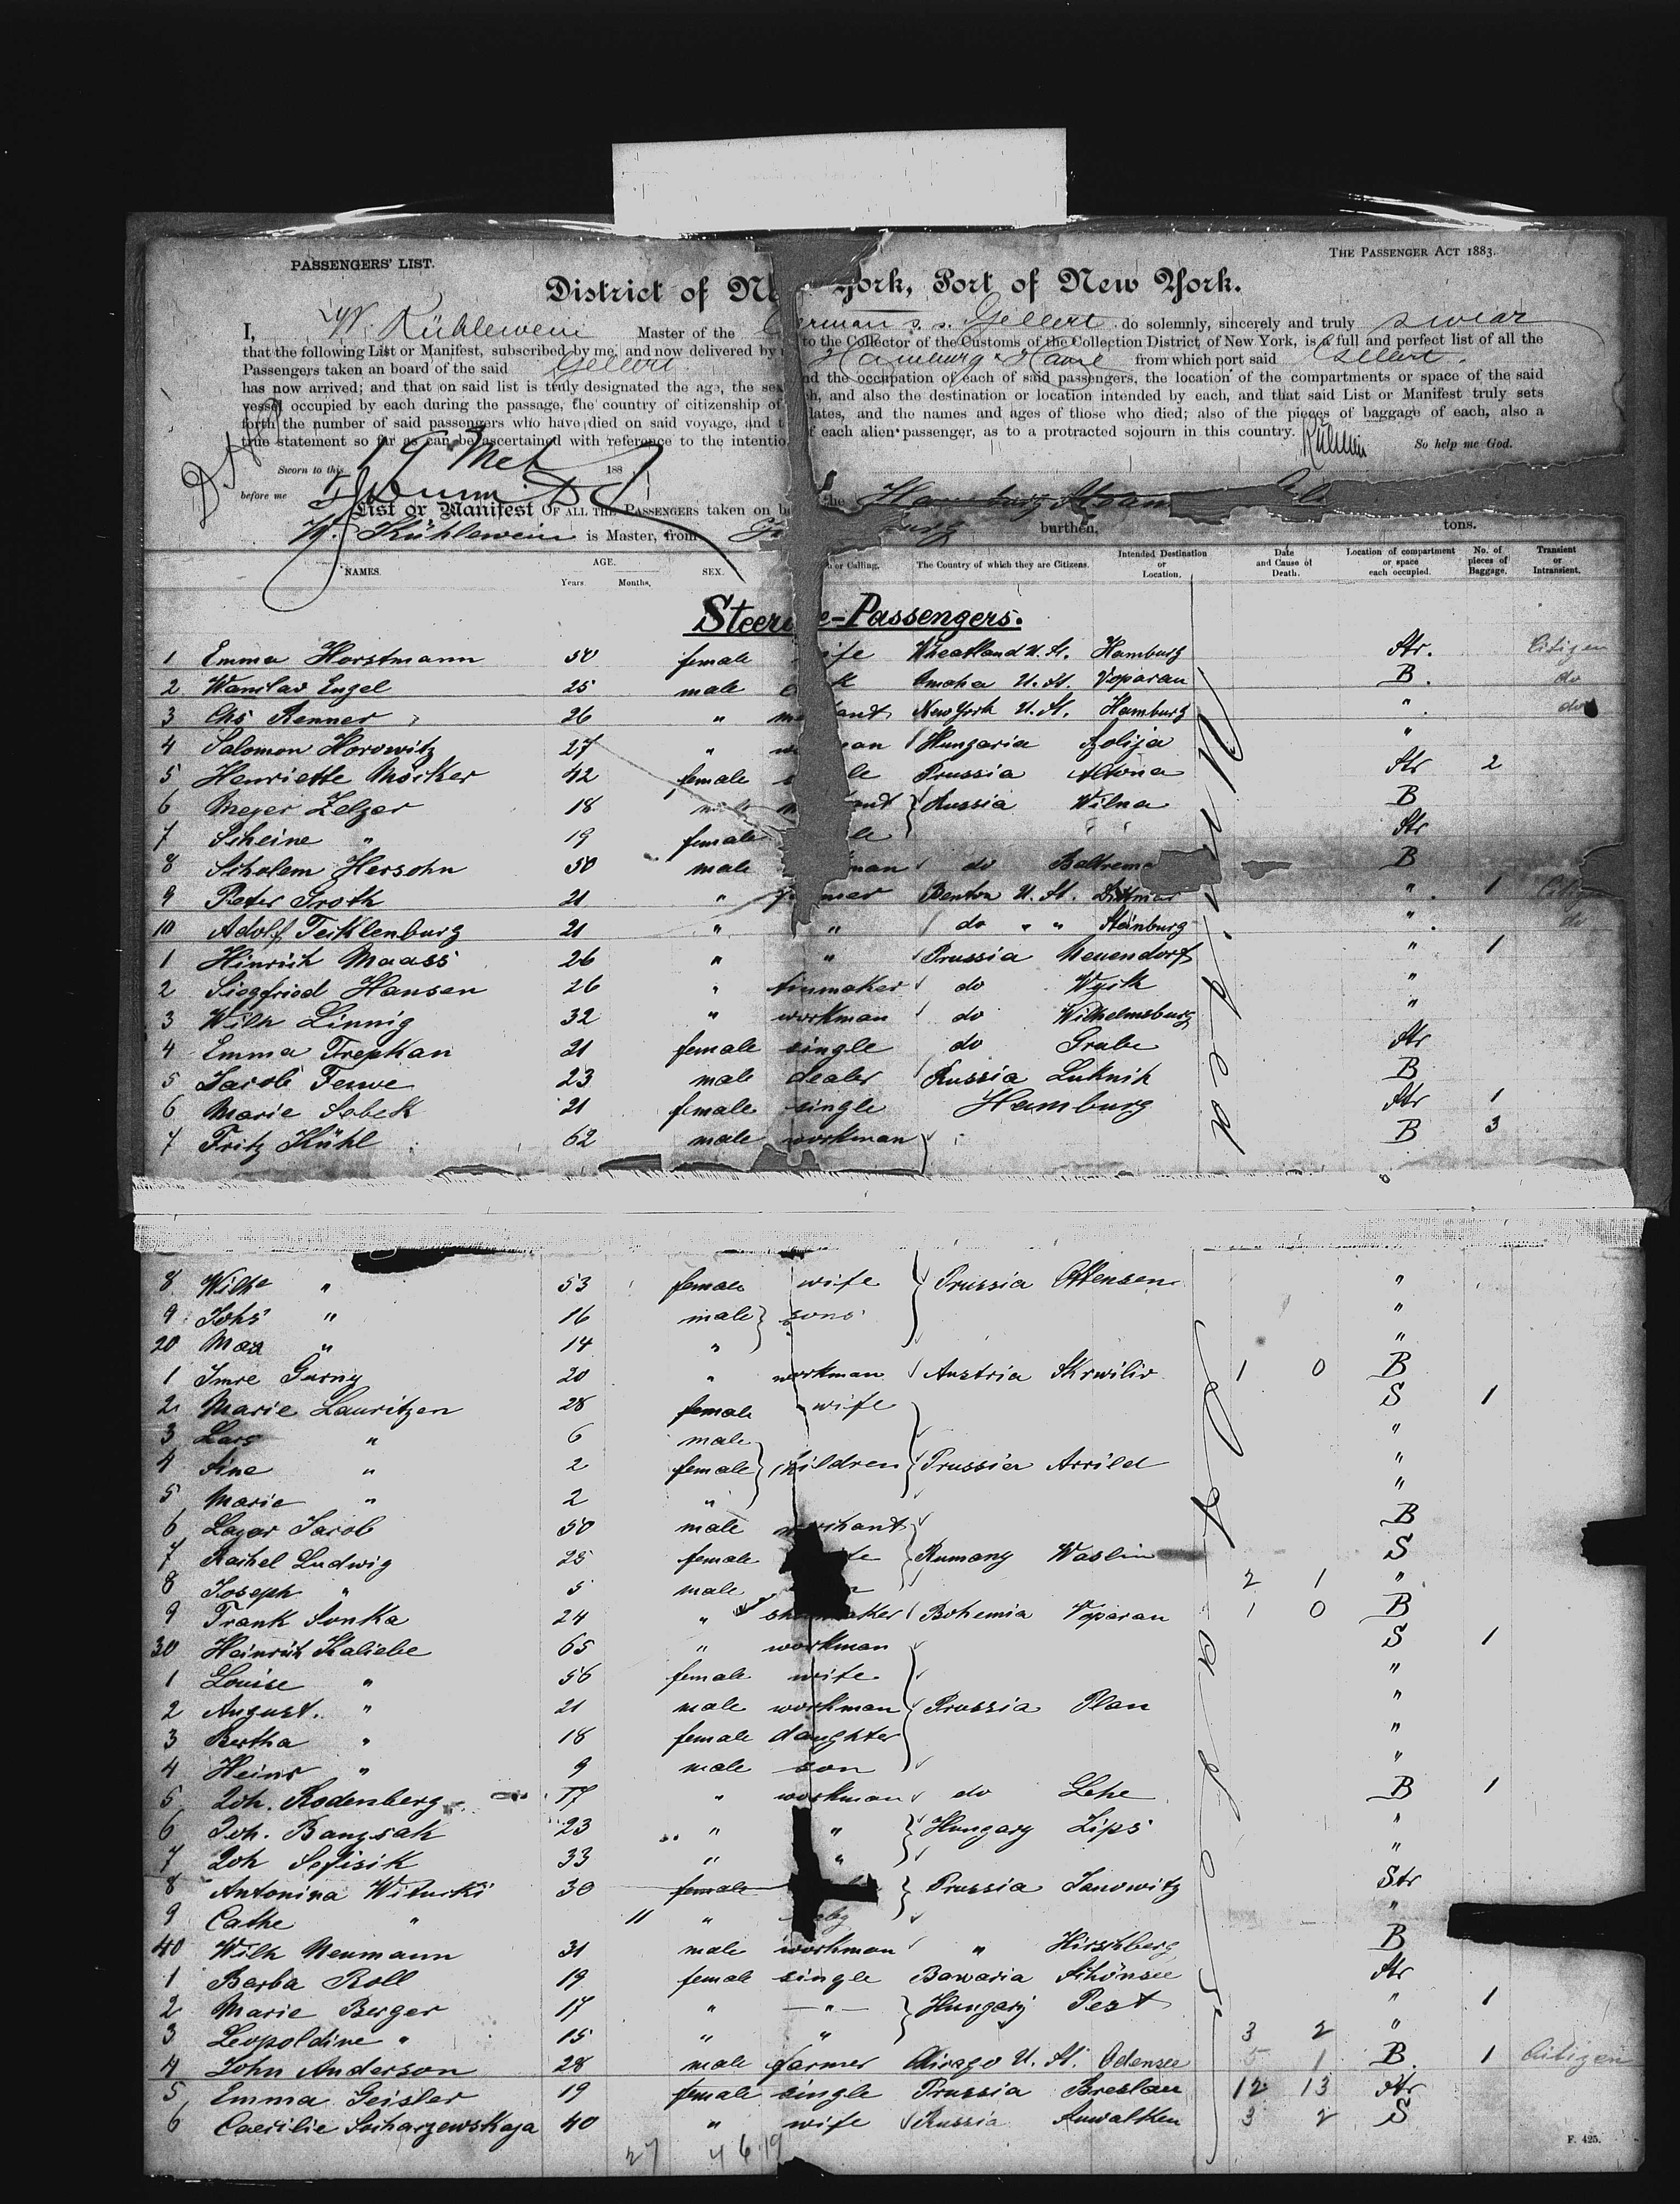 PASSENGERS' LIST.
THE PASSENGER ACT 1883.
District of Ne York, Port of New York.
I, W. Kühlewein Master of the German s. s. Gellert do solemnly, sincerely and truly swear
that the following List or Manifest, subscribed by me, and now delivered by to the Collector of the Customs of the Collection District of New York, is a full and perfect list of all the
Passengers taken an board of the said Gellert Hamburg & Havre from which port said Gellert.
has now arrived; and that on said list is truly designated the age, the sex nd the occupation of each of said passengers, the location of the compartments or space of the said
vessel occupied by each during the passage, the country of citizenship of h, and also the destination or location intended by each, and that said List or Manifest truly sets
forth the number of said passengers who have died on said voyage, and t dates, and the names and ages of those who died; also of the pieces of baggage of each, also a
true statement so far as can be ascertained with reference to the intentio f each alien passenger, as to a protracted sojourn in this country.
So help me God.
Sworn to this 19 Mch 1887
before me
List or Manifest OF ALL THE PASSENGERS taken on b the Hamburg Steam
W. Kühlewein is Master, from burg burthen, tons.
NAMES. AGE. Years Months, SEX. or Calling. The Country of which they are Citizens. Intended Destination or Location, Date and Cause of Death. Location of compartment or space each occupied. No. of pieces of Baggage. Transient or Intransient,
Steerage-Passengers.
1 Emma Horstmann 50 female wife Wheatland U. St. Hamburg Str. Citizen
2 Wanslav Engel 25 male k Omaha U. St. Voparan B. do
3 Chs Renner 26 " me ant New York U. St. Hamburg " do
4 Salomon Horowitz 27 " wo man Hungaria Szolija "
5 Henriette Möcker 42 female s le Prussia Altona Str 2
6 Meyer Zelzer 18 male m ant Russia Wilna B
7 Scheine " 19 female le " " Str
8 Scholem Hersohn 50 male man do Baltrema B
9 Peter Groth 21 " fa mer Benton U. St. Dittmar " 1 Citizen
10 Adolf Tecklenburg 21 " " do " " Steinburg " do
1 Hinrich Maass 26 " " Prussia Neuendorf " 1
2 Siegfried Hansen 26 " tinmaker do Wyck "
3 Wilh Linnig 32 " workman do Wilhelmsburg "
4 Emma Trepkan 21 female single do Grube Str
5 Jacob Fenwe 23 male dealer Russia Luknik B
6 Marie Sobek 21 female single Hamburg Str 1
7 Fritz Kühl 62 male workman B 3
8 Wilhe " 53 female wife Prussia Ottensen "
9 Johs " 16 male sons "
20 Max " 14 " "
1 Imre Gurny 20 " workman Austria Skrwiliv 1 0 B
2 Marie Lauritzen 28 female wife S 1
3 Lars " 6 male "
4 Sine " 2 female children Prussia Arrild "
5 Marie " 2 " "
6 Lazar Jacob 50 male merchant B
7 Rachel Ludwig 25 female Rumany Waslin S
8 Joseph " 5 male 2 1 "
9 Frank Sonka 24 " shoemaker Bohemia Voparan 1 0 B
30 Heinrich Kaliebe 65 " workman S 1
1 Louise " 56 female wife "
2 August. " 21 male workman Prussia Plan "
3 Bertha " 18 female daughter "
4 Heinr " 9 male son "
5 Joh. Rodenberg 17 " workman do Lehe B 1
6 Joh. Bangsak 23 " " Hungary Lips "
7 Joh Sefisik 33 " " "
8 Antonina Witucki 30 female Prussia Janowitz Str
9 Cathe " 11 " baby "
40 Wilh Neumann 31 male workman " Hirschberg B
1 Barba Roll 19 female single Bawaria Schönsee Str
2 Marie Berger 17 " " Hungary Pest " 1
3 Leopoldine " 15 " " 3 2 "
4 John Anderson 28 male farmer Chicago U. St. Odensee 5 1 B. 1 Citizen
5 Emma Geisler 19 female single Prussia Breslau 12 13 Str
6 Caecilie Sucharzewskaja 40 " wife Russia Suwalken 3 2 S
27 4 6 19
F. 425.